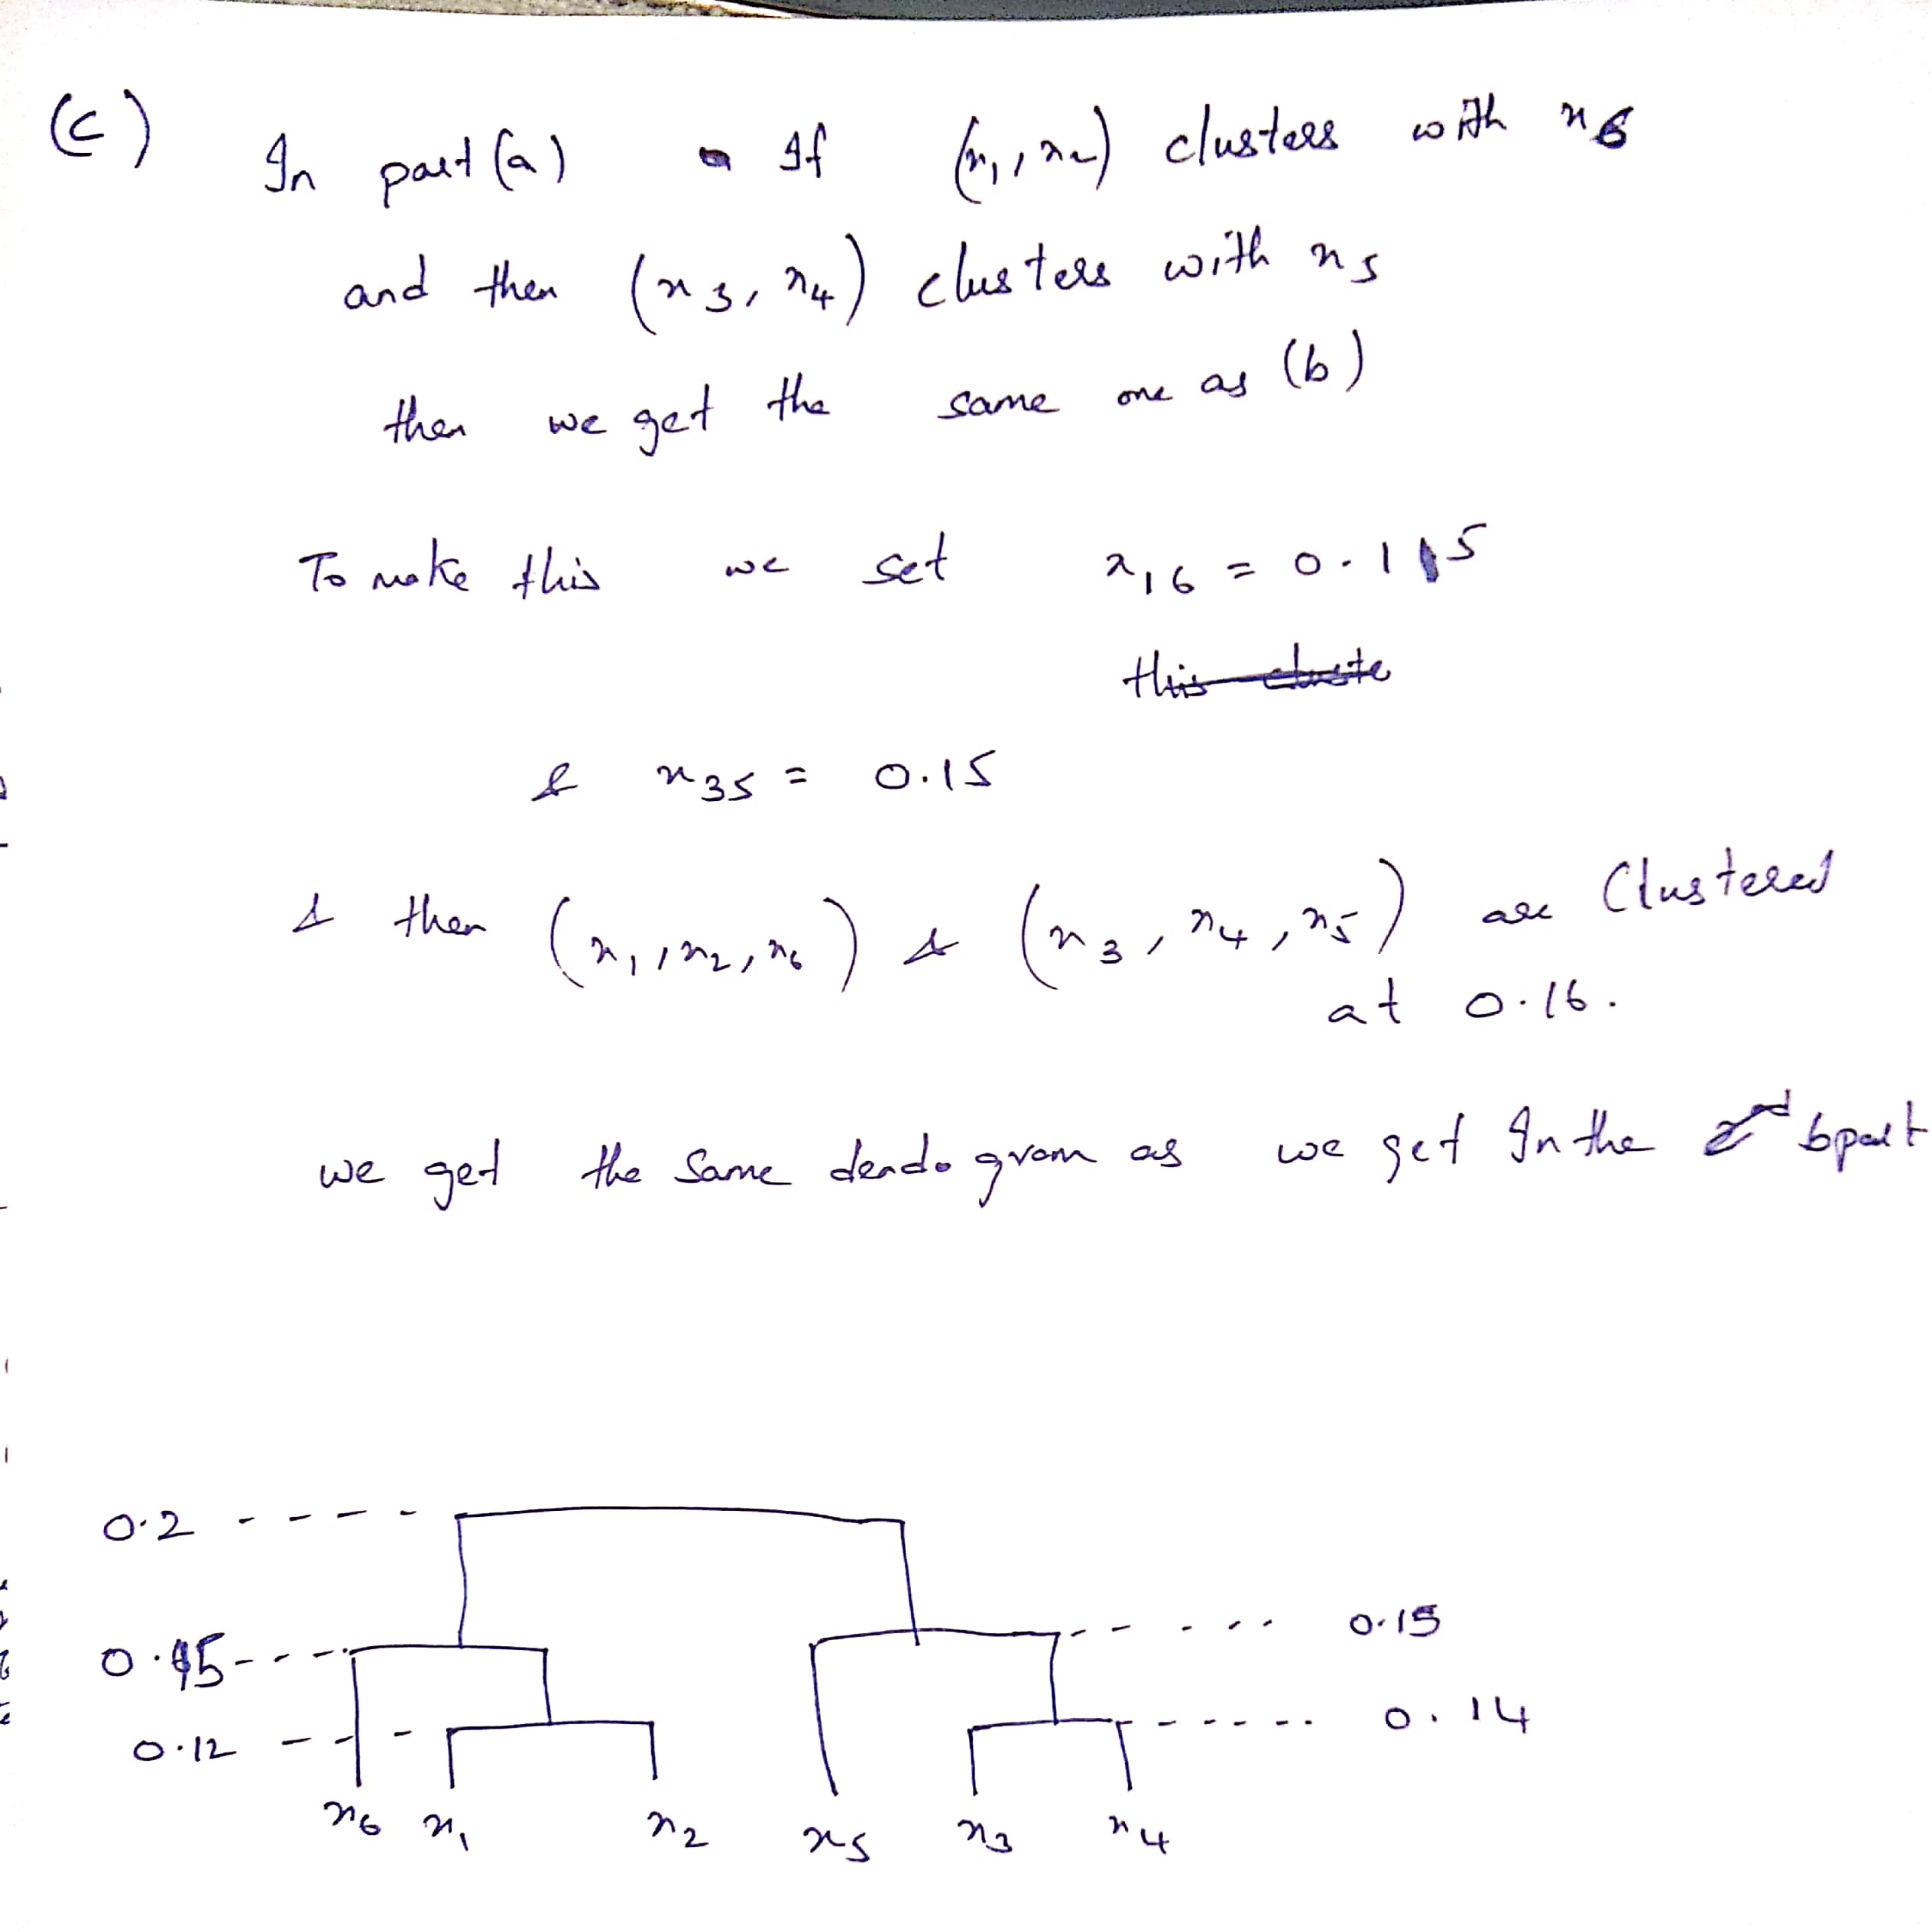 (c) In part (a) If (x₁, x₂) clusters with x₆
and then (x₃, x₄) clusters with x₅
then we get the same one as (b)
To make this we set x₁₆ = 0.115
this cluste
& x₃₅ = 0.15
& then (x₁, x₂, x₆) & (x₃, x₄, x₅) are Clustered
at 0.16.
we get the same dendogram as we get In the b part
0.2
0.15
0.15
0.12
0.14
x₆ x₁ x₂ x₅ x₃ x₄